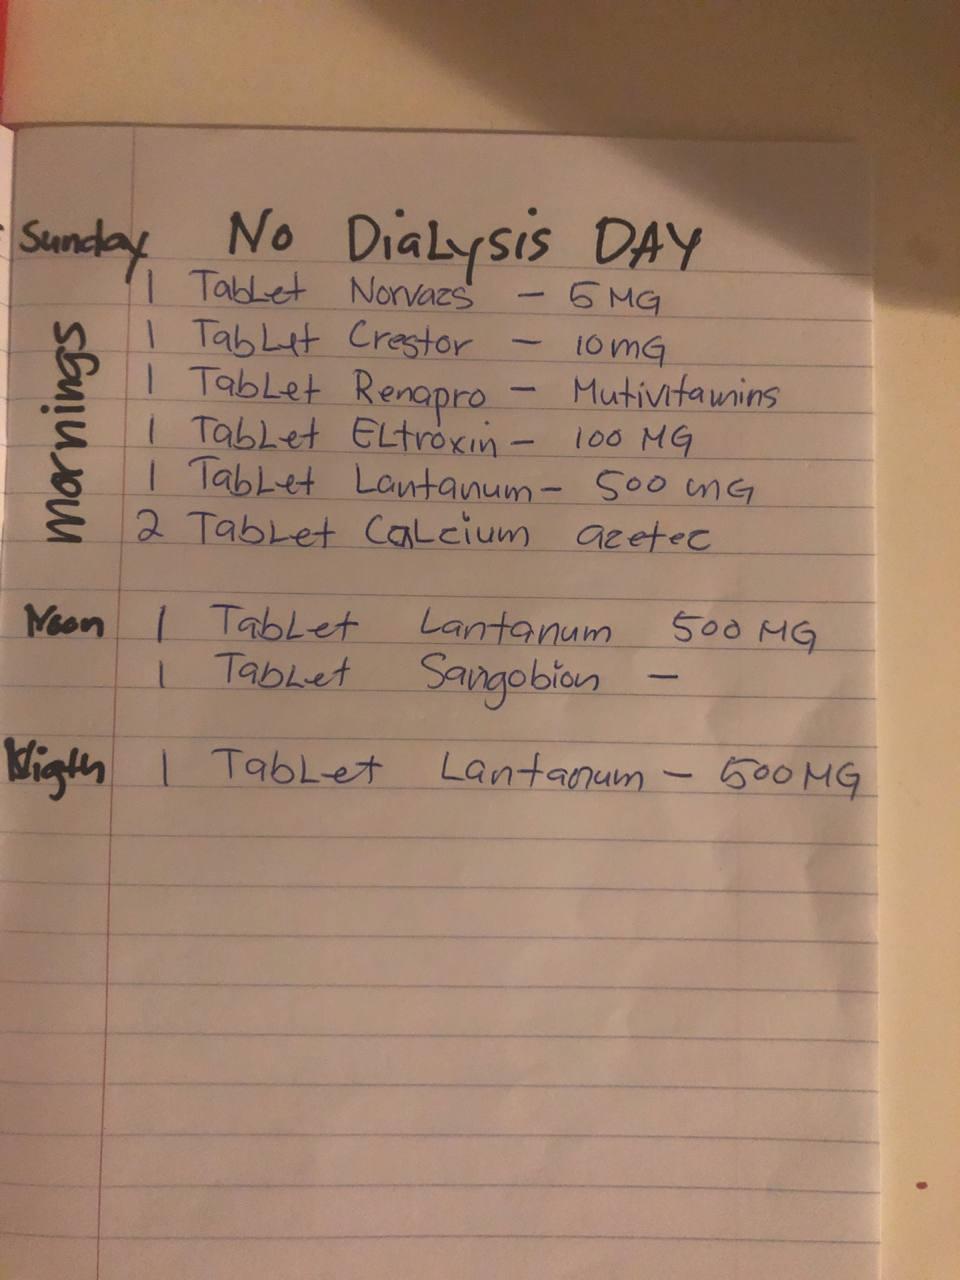 Sunday No DiaLysis DAY
mornings
1 TabLet Norvacs - 5 MG
1 TabLet Crestor - 10mG
1 TabLet Renapro - Mutivitamins
1 TabLet ELtroxin - 100 MG
1 TabLet Lantanum - 500 mG
2 TabLet CaLcium azetec
Noon 1 TabLet Lantanum 500 MG
1 TabLet Sangobion -
Nigth 1 TabLet Lantanum - 500 MG